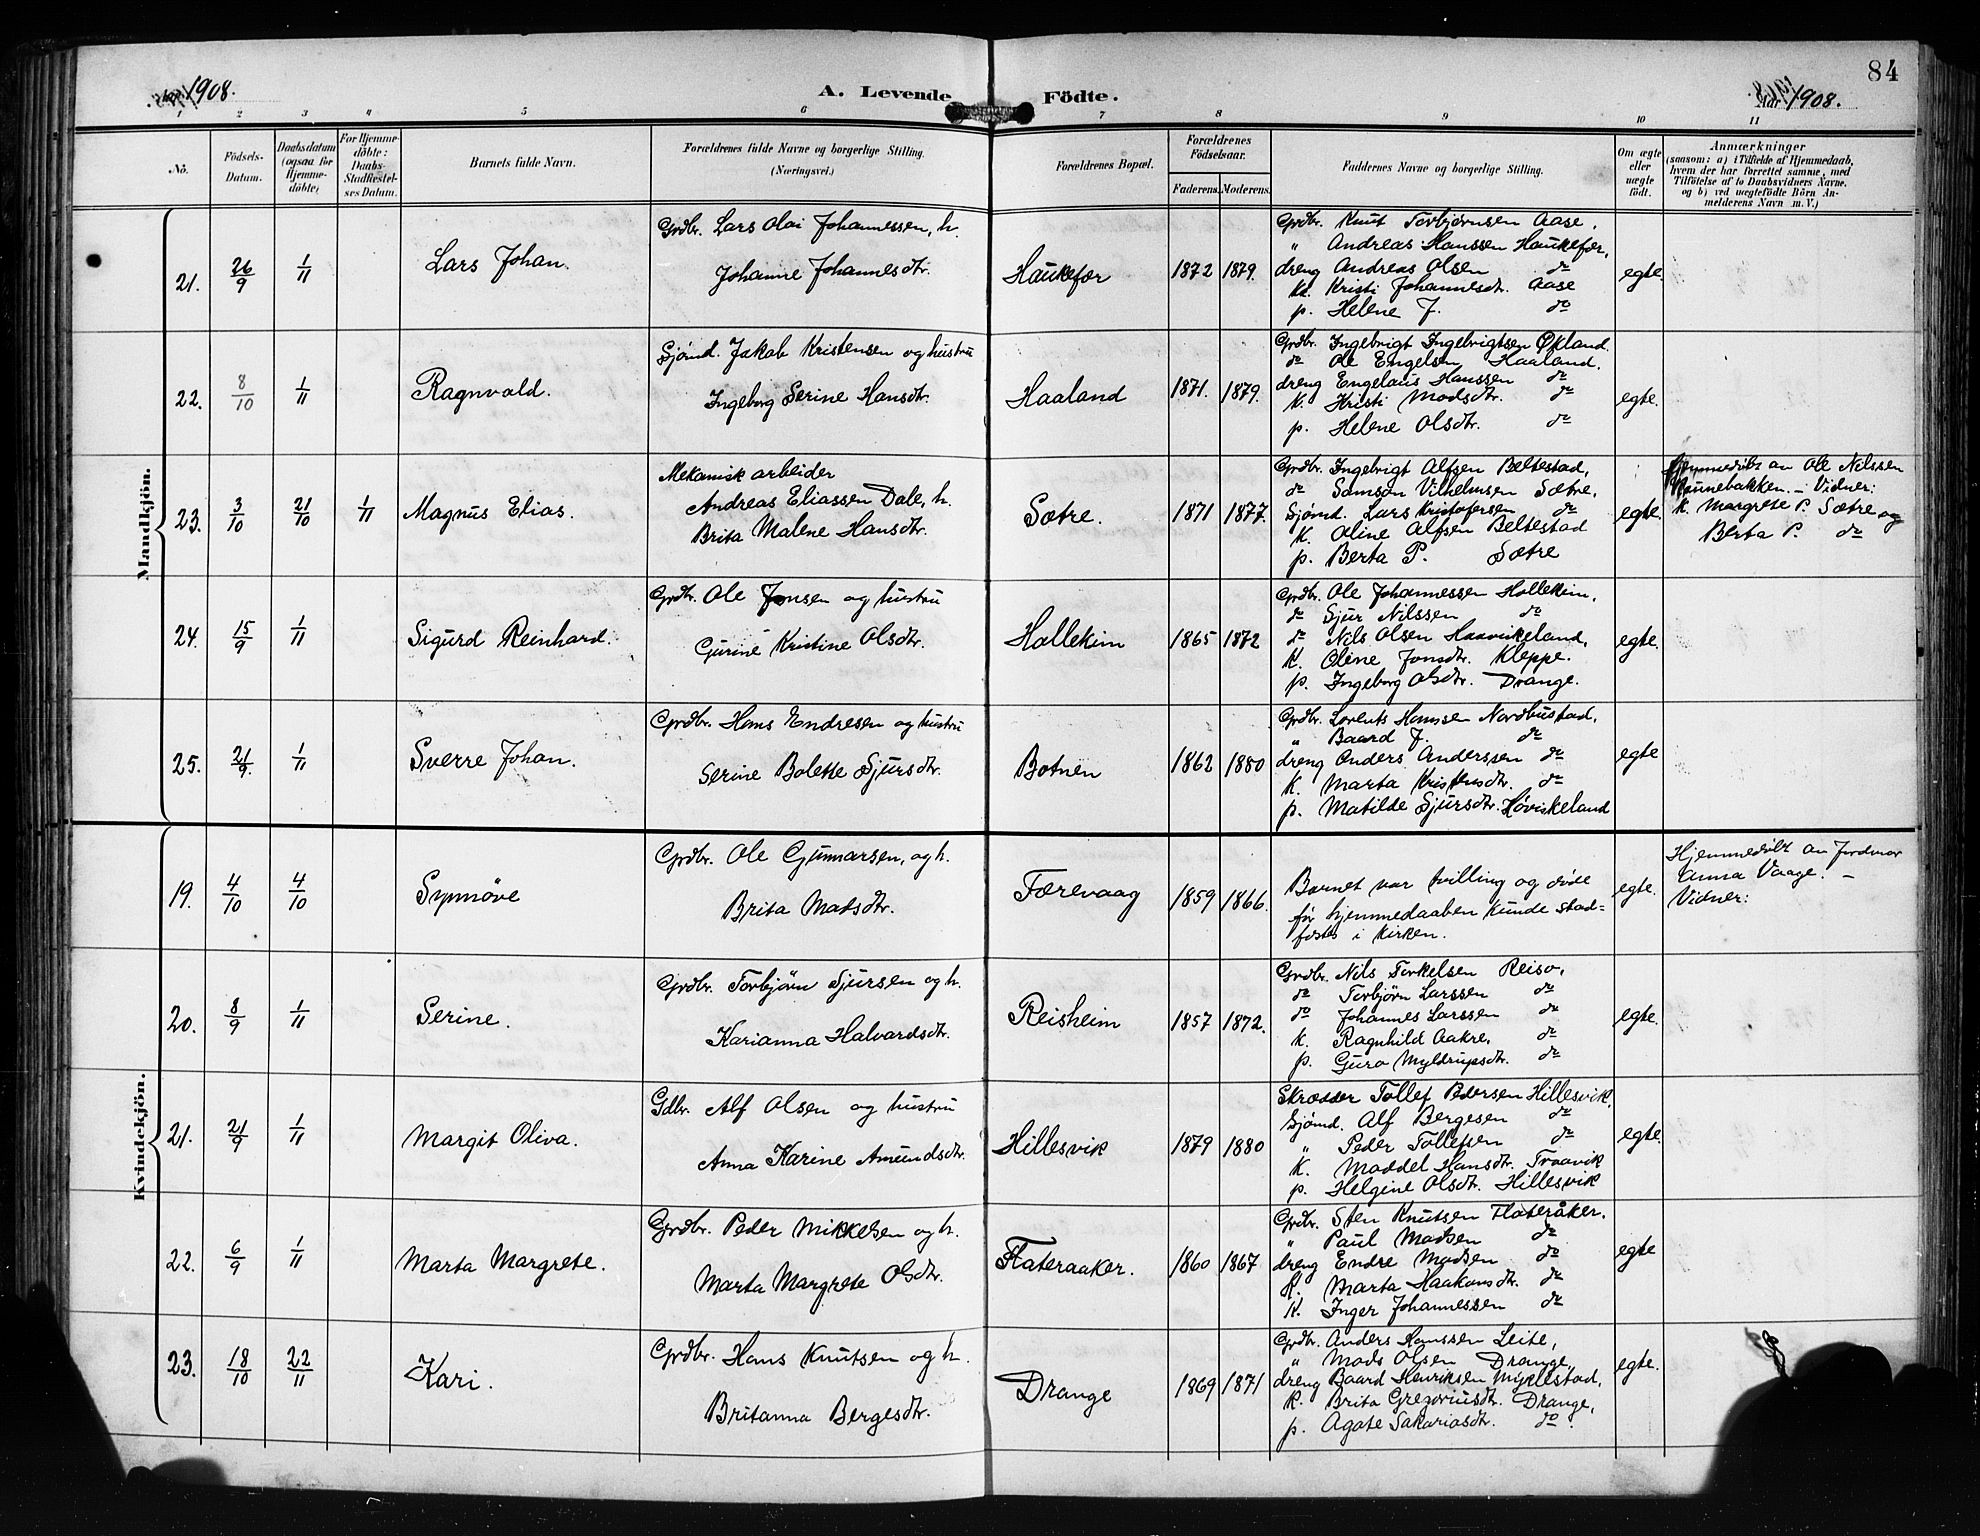 Aar 1908.
A. Levende Födte.
84
Aar 1908.
1 2 3 4 5 6 7 8 9 10 11
No.
Födsels-Datum.
Daabsdatum (ogsaa for Hjemme-döbte)
For Hjemme-döbte: Daabs-Stadfæstel-ses Datum.
Barnets fulde Navn.
Forældrenes fulde Navne og borgerlige Stilling. (Næringsvei.)
Forældrenes Bopæl.
Forældrenes Födselsaar.
Faderens. Moderens.
Faddernes Navne og borgerlige Stilling.
Om ægte eller uægte födt.
Anmærkninger
(saasom: a) i Tilfælde af Hjemmedaab,
hvem der har forrettet samme, med
Tilföielse af to Daabsvidners Navne,
og b) ved uægtefödte Börn An-
melderens Navn m. V.)
Mandkjön.
21. 26/9 1/11 Lars Johan.
Grdbr. Lars Olai Johannessen, h.
Johanne Johannesdtr.
Haukefær 1872 1879.
Grdbr. Knut Torbjørnsen Aase,
" Andreas Hanssen Haukefær,
dreng Andreas Olsen do
K. Kristi Johannesdtr. Aase
p. Helene J. do
egte.
22. 8/10 1/11 Ragnvald.
Sjømd. Jakob Kristensen og hustru
Ingeborg Serine Hansdtr.
Haaland 1871. 1879.
Grdbr. Ingebrigt Ingebrigtsen Økland.
do Ole Engelsen Haaland.
dreng Engelaus Hanssen do
K. Kristi Madsdtr. do
p. Helene Olsdtr. do
egte.
23. 3/10 21/10 1/11 Magnus Elias.
Mekanisk arbeider
Andreas Eliassen Dale, h.
Brita Malene Hansdtr.
Sætre. 1871 1877.
Grdbr. Ingebrigt Alfsen Beltestad,
do Samson Vilhelmsen Sætre,
Sjømd. Lars Kristofersen do
K. Oline Alfsen Beltestad
p. Berta P. Sætre
egte.
Hjemmedöbt av Ole Nilssen
Rønnebakken. – Vidner:
K. Margrete P. Sætre og
Berta P. do
24. 15/9 1/11 Sigurd Reinhard.
Grdbr. Ole Jonsen og hustru
Gurine Kristine Olsdtr.
Hollekim 1865 1872
Grdbr. Ole Johannessen Hollekim,
do Sjur Nilssen do
do Nils Olsen Haavikeland,
K. Oline Jonsdtr. Kleppe.
p. Ingeborg Olsdtr. Drange.
egte.
25. 21/9. 1/11 Sverre Johan.
Grdbr. Hans Endresen og hustru
Serine Bolette Sjursdtr.
Botnen 1862 1880
Grdbr. Lorents Hanssen Nordbustad,
" Baard J. do
dreng Anders Anderssen do
K. Marta Kristensdtr. do
p. Matilde Sjursdtr. Høvikeland
egte
Kvindekjön.
19. 4/10 4/10 Synnöve
Grdbr. Ole Gunnarsen, og h.
Brita Madsdtr.
Færevaag 1859 1866.
Barnet var tvilling og døde
før hjemmedaaben kunde stad=
festes i kirken.
egte.
Hjemmedöbt av Jordmor
Anna Vaage. –
Vidner:
20. 8/9 1/11 Serine.
Grdbr. Torbjörn Sjursen og h.
Karianna Halvardsdtr.
Reisheim 1857 1872.
Grdbr. Nils Torkelsen Reiso,
do Torbjørn Larssen do
do Johannes Larssen do
K. Ragnhild Aakre, do
p. Guro Myldrupsdtr. do
egte.
21. 21/9 1/11 Margit Oliva.
Gdbr. Alf Olsen og hustru
Anna Karine Amundsdtr.
Hillesvik 1879 1880
Skrædder Tollef Pedersen Hillesvik,
Sjømd. Alf Bergesen do
" Peder Tollefsen do
K. Maddel Hansdtr. Traavik
p. Helgine Olsdtr. Hillesvik
egte.
22. 6/9 1/11 Marta Margrete.
Grdbr. Peder Mikkelsen og h.
Marta Margrete Olsdtr.
Flateraaker. 1860 1867
Grdbr. Sten Knutsen Flateråker.
" Paul Madsen do
dreng Endre Madsen do
K. Marta Haakonsdtr. do
K. Inger Johannessen do
egte
23. 18/10 22/11 Kari.
Grdbr. Hans Knutsen og h.
Britanna Bergesdtr.
Drange 1869 1871
Grdbr. Anders Hanssen Leite,
" Mads Olsen Drange,
dreng Baard Henriksen Myklestad,
K. Brita Gregoriusdtr. Drange,
p. Agate Sakariasdtr. do.
egte.